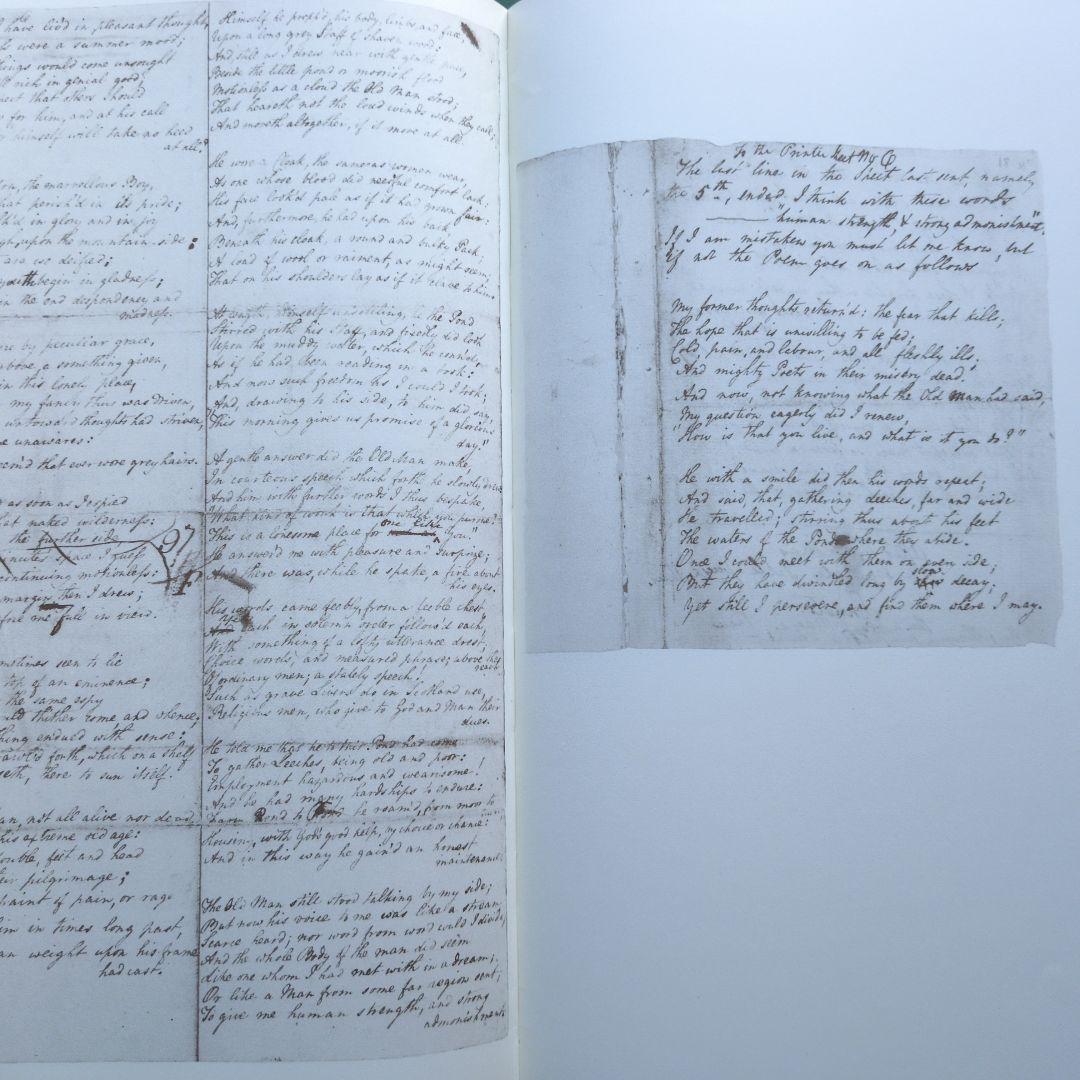 have liv'd in pleasant thought,
were a summer mood;
things would come unsought
rich in genial good;
that others should
for him, and at his call
himself will take no heed
at all?
the marvellous Boy,
that perish'd in its pride;
in glory and in joy
upon the mountain-side:
are we deified;
youth begin in gladness;
in the end despondency and
madness.
by peculiar grace,
above, a something given,
in this lonely place,
my fancy thus was driven,
untoward thoughts had striven,
unawares:
that ever wore grey hairs.
as soon as I espied
naked wilderness:
the further side
minute's space I guess
continuing motionless:
margin then I drew;
me full in view.
sometimes seen to lie
top of an eminence;
the same espy
thither come and whence;
thing endued with sense:
forth, which on a shelf
there to sun itself.
not all alive nor dead,
his extreme old age:
double, feet and head
pilgrimage;
of pain, or rage
in times long past,
weight upon his frame
had cast.
Himself he propp'd, his body, limbs and face,
Upon a long grey Staff of shaven wood:
And, still as I drew near with gentle pace,
Beside the little pond or moorish flood
Motionless as a cloud the Old Man stood;
That heareth not the loud winds when they call;
And moveth altogether, if it move at all.
He wore a Cloak, the same as women wear
As one whose blood did needful comfort lack:
His face look'd pale as if it had grown fair;
And, furthermore he had upon his back,
Beneath his cloak, a round and bulky Pack,
A load of wool or raiment, as might seem;
That on his shoulders lay as if it clave to him
At length, himself unsettling, he the Pond
Stirred with his Staff, and fixedly did look
Upon the muddy water, which he conn'd,
As if he had been reading in a book:
And now such freedom as I could I took;
And, drawing to his side, to him did say,
"This morning gives us promise of a glorious
day."
A gentle answer did the Old Man make,
In courteous speech which forth he slowly drew
And him with further words I thus bespake,
"What kind of work is that which you pursue?
This is a lonesome place for one like you."
He answer'd me with pleasure and surprize;
And there was, while he spake, a fire about
his eyes.
His words came feebly, from a feeble chest,
Yet each in solemn order follow'd each,
With something of a lofty utterance drest;
Choice words, and measured phrase; above the
reach
Of ordinary men; a stately speech!
Such as grave Livers do in Scotland use,
Religious men, who give to God and Man their
dues.
He told me that he to this Pond had come
To gather Leeches, being old and poor:
Employment hazardous and wearisome!
And he had many hardships to endure:
From Pond to Pond he roam'd, from moor to
moor
Housing, with God's good help, by choice or chance:
And in this way he gain'd an honest
maintenance.
The Old Man still stood talking by my side;
But now his voice to me was like a stream
Scarce heard; nor word from word could I divide;
And the whole Body of the man did seem
Like one whom I had met with in a dream;
Or like a Man from some far region sent;
To give me human strength, and strong
admonishment.
97
To the Printer
The last line in the Sheet last sent, namely
the 5th, ended, I think with these words
"human strength, & strong admonishment".
If I am mistaken you must let me know, but
if not the Poem goes on as follows
My former thoughts return'd: the fear that kills;
The hope that is unwilling to be fed;
Cold, pain, and labour, and all fleshly ills;
And mighty Poets in their misery dead.
And now, not knowing what the Old Man had said,
My question eagerly did I renew,
"How is that you live, and what is it you do?"
He with a smile did then his words repeat;
And said that, gathering Leeches, far and wide
He travelled; stirring thus about his feet
The waters of the Ponds where they abide.
Once I could meet with them on every side;
But they have dwindled long by slow decay;
Yet still I persevere, and find them where I may.
18